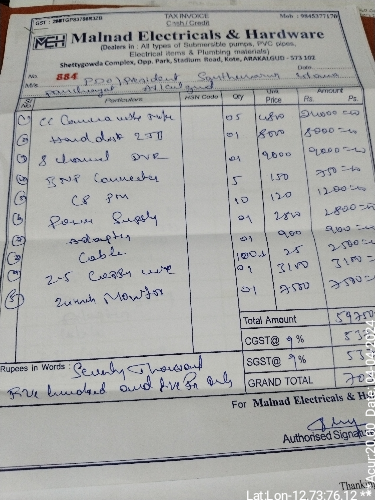 TAX INVOICE
Cash / Credit
Mob : 9845377176
MEH Malnad Electricals & Hardware
(Dealers in : All types of Submersible pumps, PVC pipes,
Electrical items & Plumbing materials)
Shettygowda Complex, Opp. Park, Stadium Road, Kote, ARAKALGUD - 573 102
No. 884
Date
M/s
Particulars HSN Code Qty Unit Price Rs. Amount Rs.
CC Camera with 05 4800 24000=00
Hard disk 2TB 01 8000 8000=00
8 channel DVR 01 9000 9000=00
BNP Connecter 5 150 750=00
10 120 1200=00
Power Supply 01 2800 2800=00
adapter 01 900 900=00
Cable 25 2500=00
2-5 wire 01 3100 3100=00
Monitor 01 7500 7500=00
Total Amount 59750
CGST@ 9% 53
SGST@ 9% 53
GRAND TOTAL 70
Rupees in Words : Seventy Thousand
Five hundred and five Rs only
For Malnad Electricals & H
Authorised Signat
Thank
Lat Lon-12,73;76,12 **
Acur:20.80 Date:04.04.2024